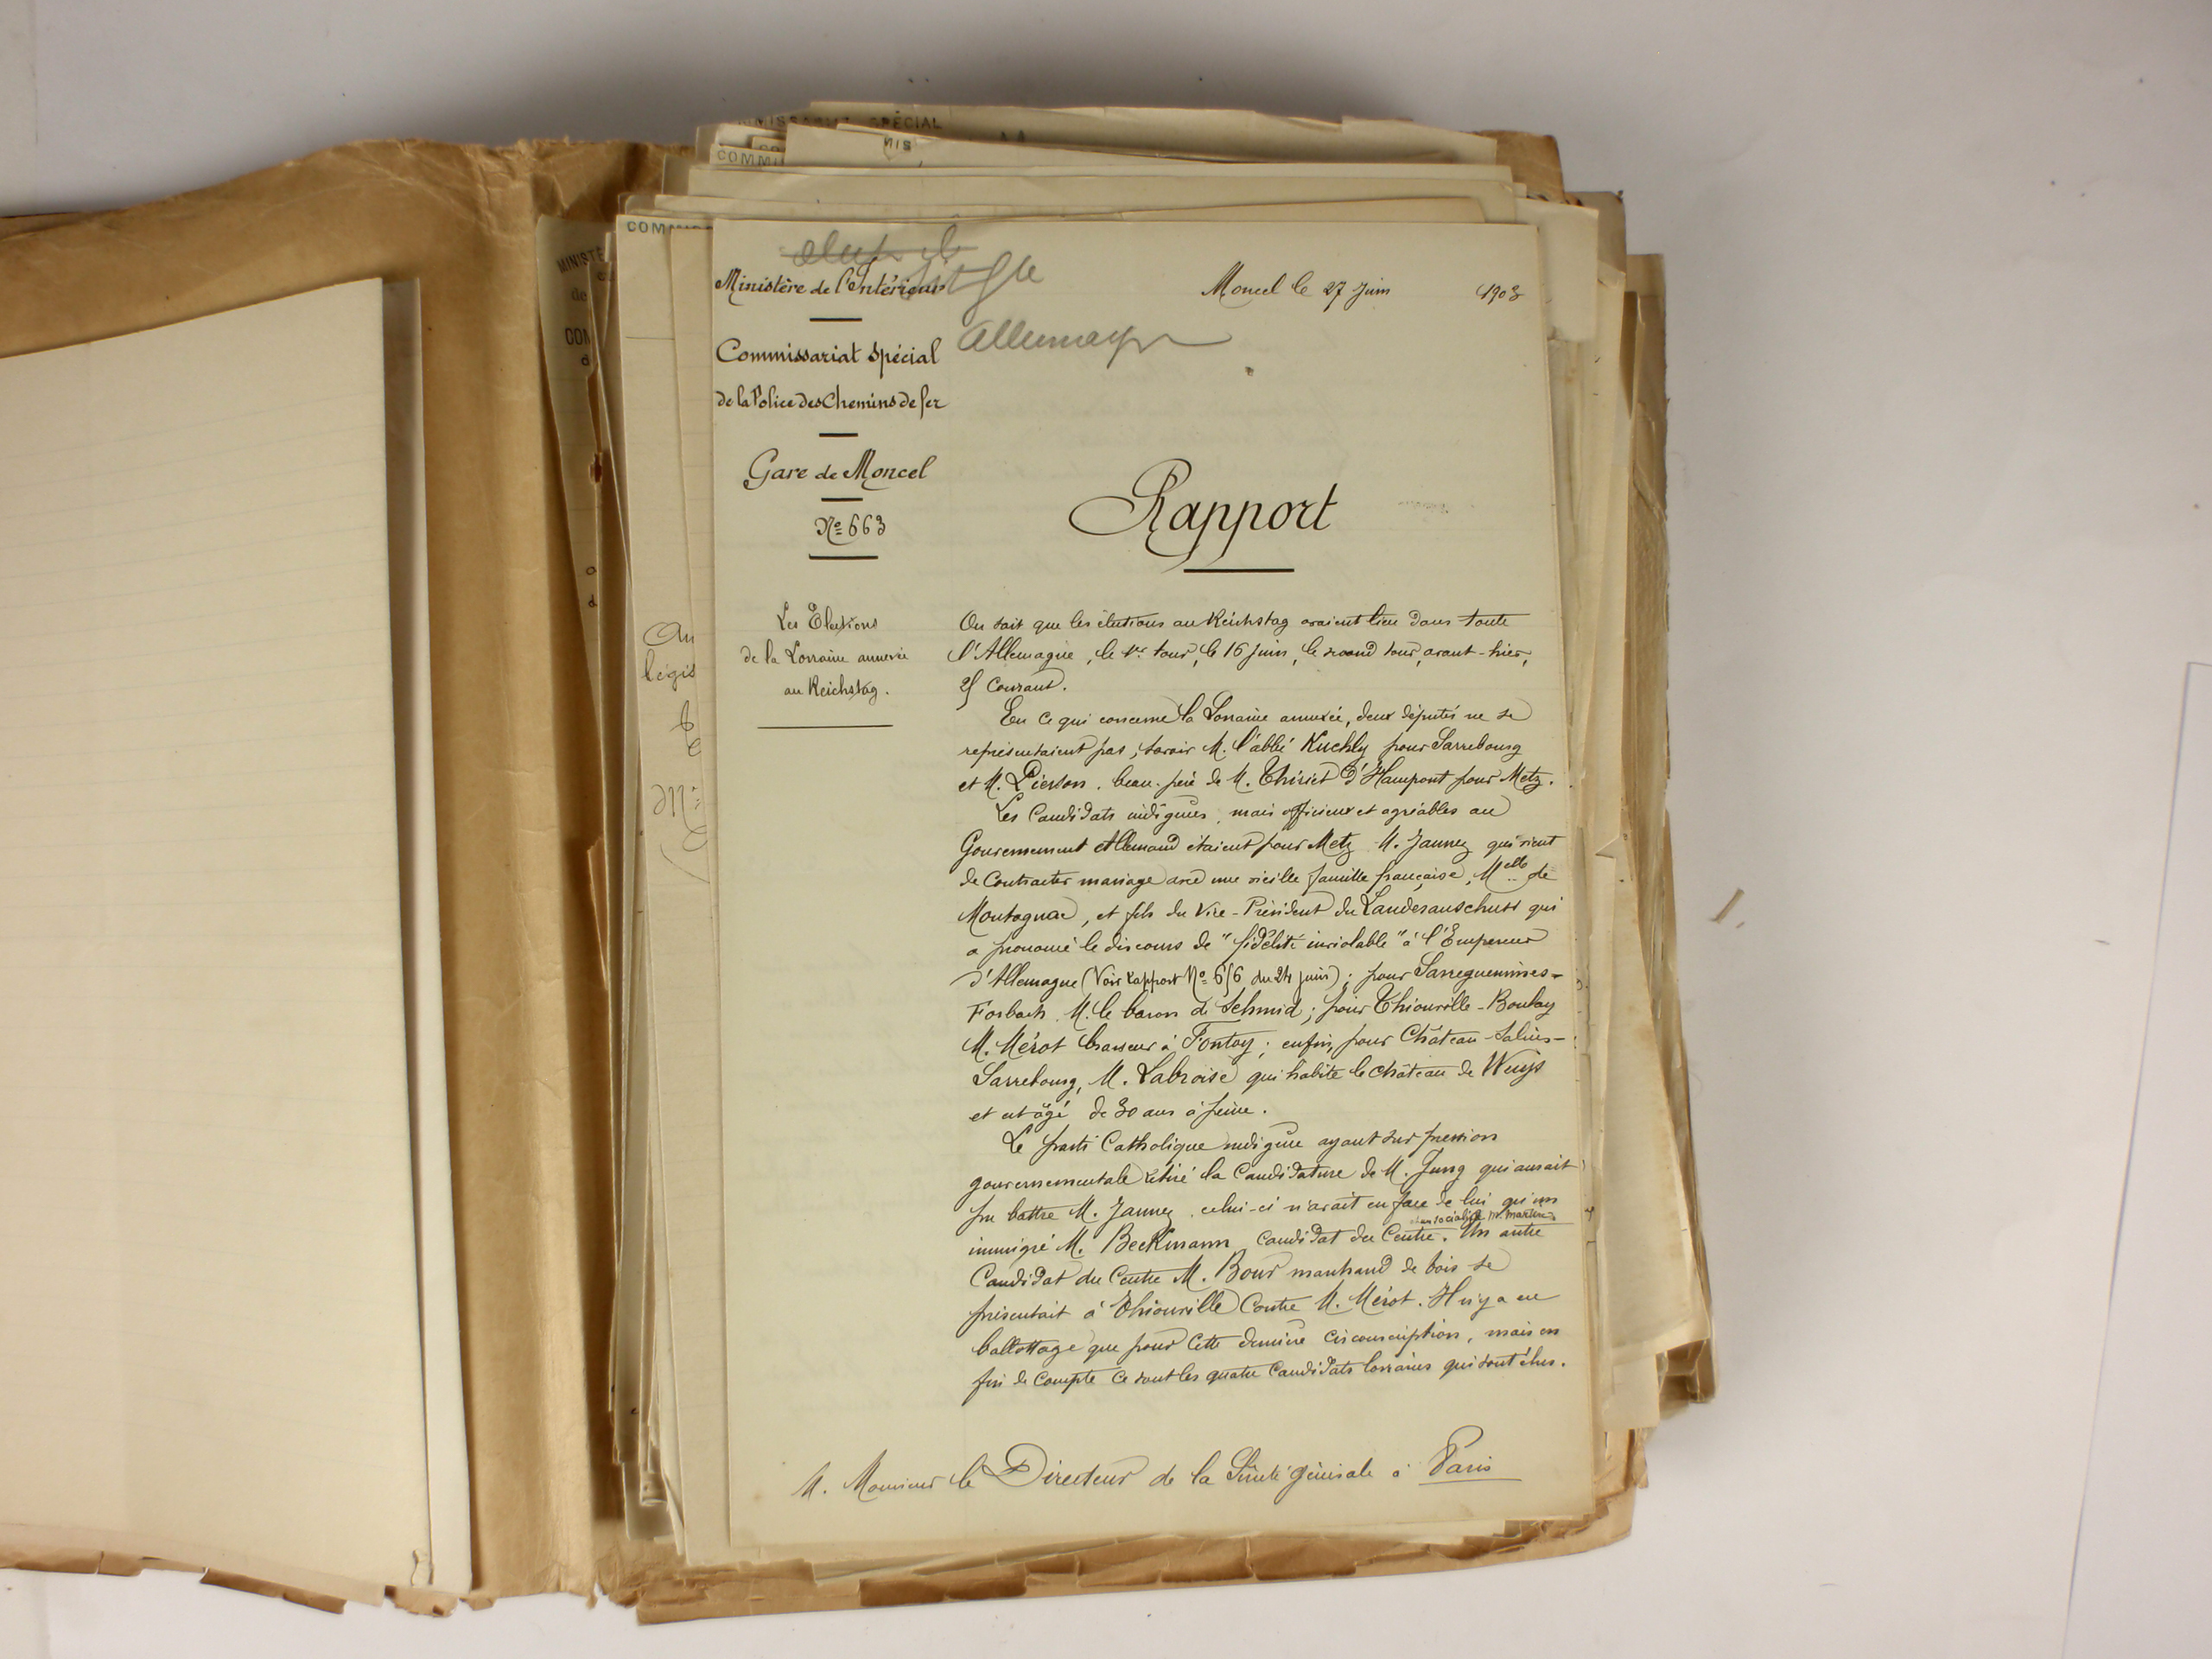 MMISSARIAT SPÉCIAL
COMMI
MINISTÈ
de
CON
d
COMM
Ministère de l'Intérieur
Moncel le 27 Juin 1903
Allemagne
Commissariat Spécial
de la Police des Chemins de fer
Gare de Moncel
Nº 663
Rapport
Les Élections
de la Lorraine annexée
au Reichstag.
légis
On sait que les élections au Reichstag avaient lieu dans toute
l'Allemagne, le 1er tour, le 16 juin, le second tour, avant-hier,
25 Courant.
En ce qui concerne la Lorraine annexée, deux députés ne se
représentaient pas, savoir M. l'abbé Kuchly pour Sarrebourg
et M. Pierson, beau-père de M. Thiriet d'Hampont pour Metz.
Les Candidats indigènes, mais officieux et agréables au
Gouvernement Allemand étaient pour Metz M. Jaunez qui vient
de Contracter mariage avec une vieille famille française, Melle de
Montagnac, et fils du Vice-Président du Landesauschuss qui
a prononcé le discours de "fidélité inviolable" à l'Empereur
d'Allemagne (Voir rapport Nº 656 du 24 juin); pour Sarreguemines-
Forbach M. le baron de Schmid; pour Thionville-Boulay
M. Mérot brasseur à Fontoy; enfin, pour Château-Salins-
Sarrebourg, M. Labroise qui habite le Château de Wuiss
et est âgé de 30 ans à peine.
Le parti Catholique indigène ayant sur pression
gouvernementale retiré la Candidature de M. Jung qui aurait
pu battre M. Jaunez, celui-ci n'avait en face de lui qu'un
un socialiste M. Martin
immigré M. Beckmann Candidat du Centre. Un autre
Candidat du Centre M. Bour marchand de bois se
présentait à Thionville Contre M. Mérot. Il n'y a eu
ballottage que pour Cette dernière Circonscription, mais en
fin de Compte Ce sont les quatre Candidats lorrains qui sont élus.
A. Monsieur le Directeur de la Sûreté Générale à Paris